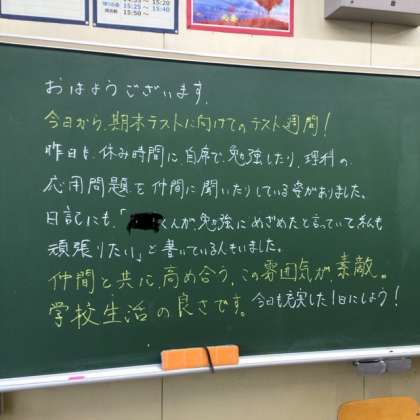 15:15~15:20
15:25~15:40
15:50~
おはようございます。
今日から、期末テストに向けてのテスト週間！
昨日も、休み時間に、自席で、勉強したり、理科の、
応用問題を仲間に聞いたりしている姿がありました。
日記にも、「くんが、勉強にめざめたと言っていて私も
頑張りたい」と書いている人もいました。
仲間と共に、高め合う、この雰囲気が、素敵。
学校生活の良さです。今日も充実した1日にしよう！